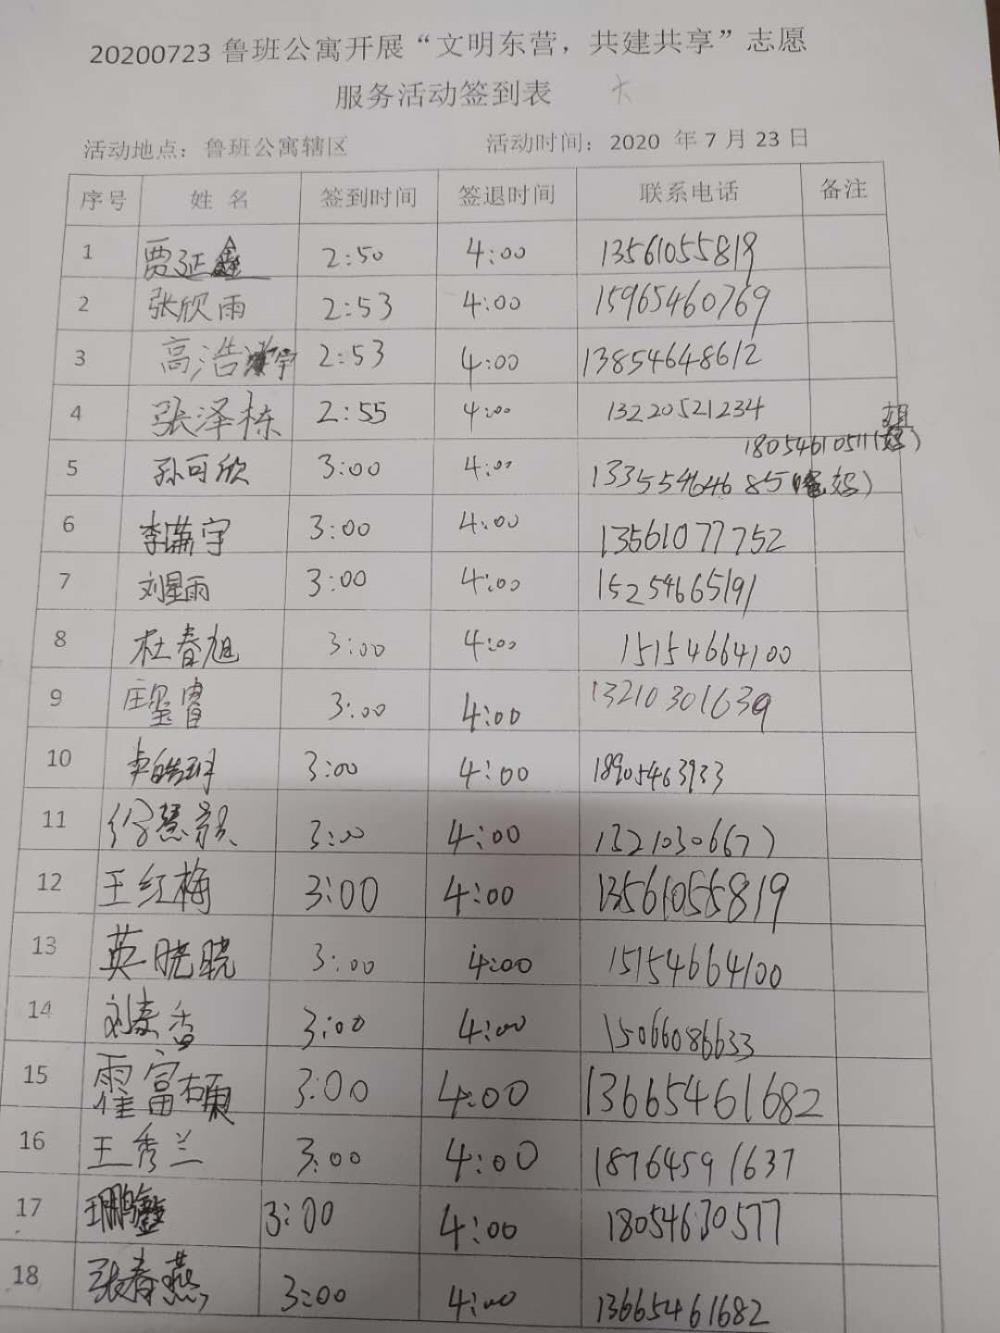 20200723 鲁班公寓开展“文明东营，共建共享”志愿
服务活动签到表
活动地点：鲁班公寓辖区 活动时间：2020 年 7 月 23 日
序号 姓 名 签到时间 签退时间 联系电话 备注
1 贾延鑫 2:50 4:00 13561055819
2 张欣雨 2:53 4:00 15965460769
3 高浩宇 2:53 4:00 13854648612
4 张泽栋 2:55 4:00 13220521234
18054610511(妈)
5 孙可欣 3:00 4:00 13355464685(妈)
6 李潇宇 3:00 4:00 13561077752
7 刘星雨 3:00 4:00 15254665191
8 杜春旭 3:00 4:00 15154664100
9 庄玺睿 3:00 4:00 13210301639
10 3:00 4:00 18905463933
11 徐慧颖 3:00 4:00 13210306677
12 王红梅 3:00 4:00 13561055819
13 英晓晓 3:00 4:00 15154664100
14 刘春香 3:00 4:00 15066086633
15 霍富硕 3:00 4:00 13665461682
16 王秀兰 3:00 4:00 18764591637
17 3:00 4:00 18054630577
18 张春燕 3:00 4:00 13665461682